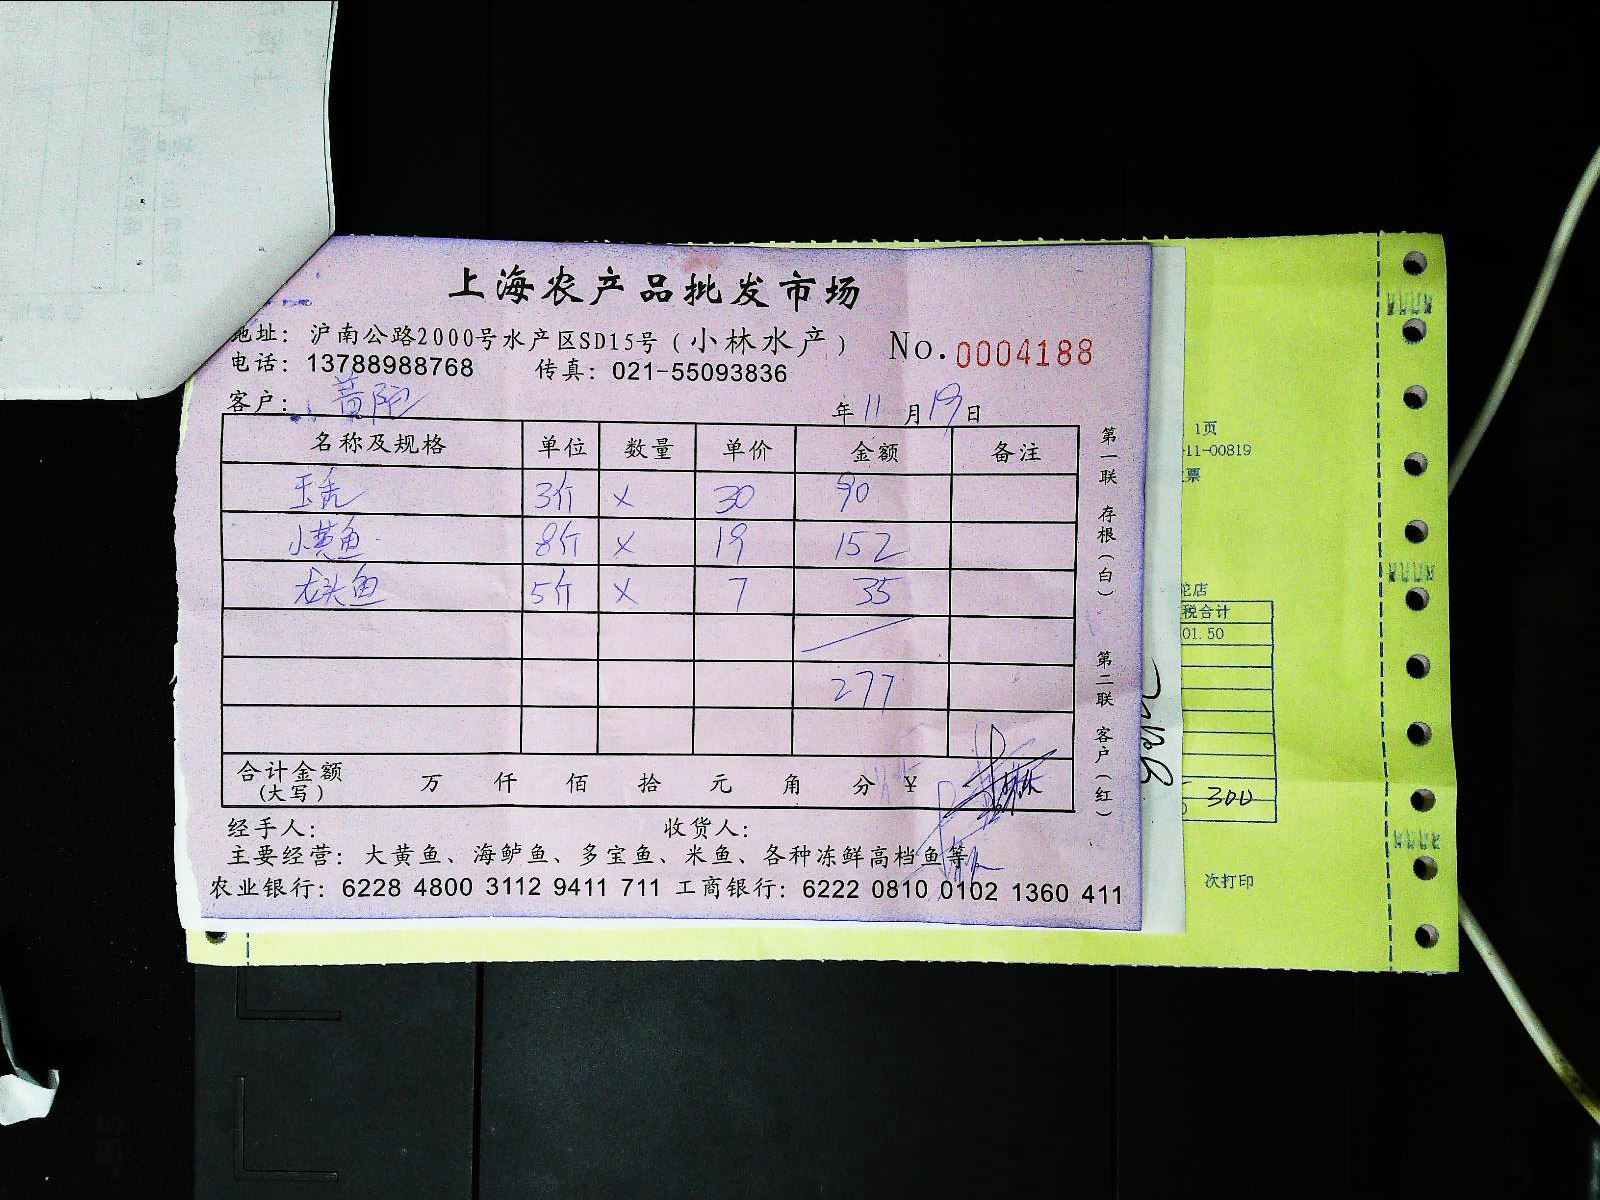 上海农产品批发市场
地址：沪南公路2000号水产区SD15号（小林水产） No.0004188
电话：13788988768 传真：021-55093836
客户：
年 11 月 19 日
名称及规格 单位 数量 单价 金额 备注
3斤 × 30 90
小黄鱼 8斤 × 19 152
龙头鱼 5斤 × 7 35
277
合计金额（大写） 万 仟 佰 拾 元 角 分 ¥
经手人： 收货人：
主要经营：大黄鱼、海鲈鱼、多宝鱼、米鱼、各种冻鲜高档鱼等
农业银行：6228 4800 3112 9411 711 工商银行：6222 0810 0102 1360 411
第一联 存根（白）
第二联 客户（红）
1页
-11-00819
票
店
税合计
01.50
300
次打印